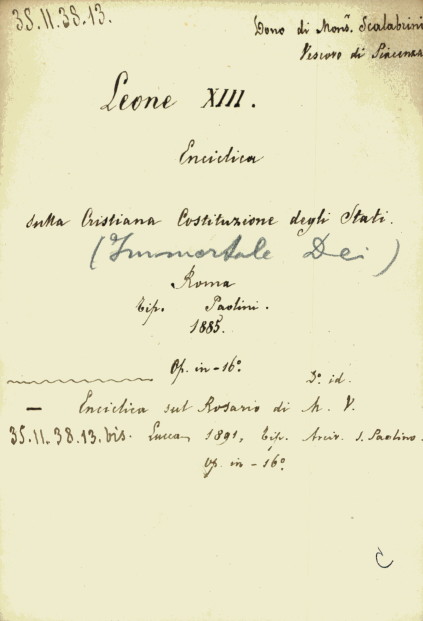 35.11.38.13.
Dono di Mons. Scalabrini
Vescovo di Piacenza
Leone XIII.
Enciclica
sulla Cristiana Costituzione degli Stati.
(Immortale Dei)
Roma
Tip. Paolini.
1885.
Op. in-16º
Dº. id.
— Enciclica sul Rosario di M. V.
35.11.38.13.bis. Lucca, 1891, Tip. Arciv. S. Paolino.
Op. in-16º
C